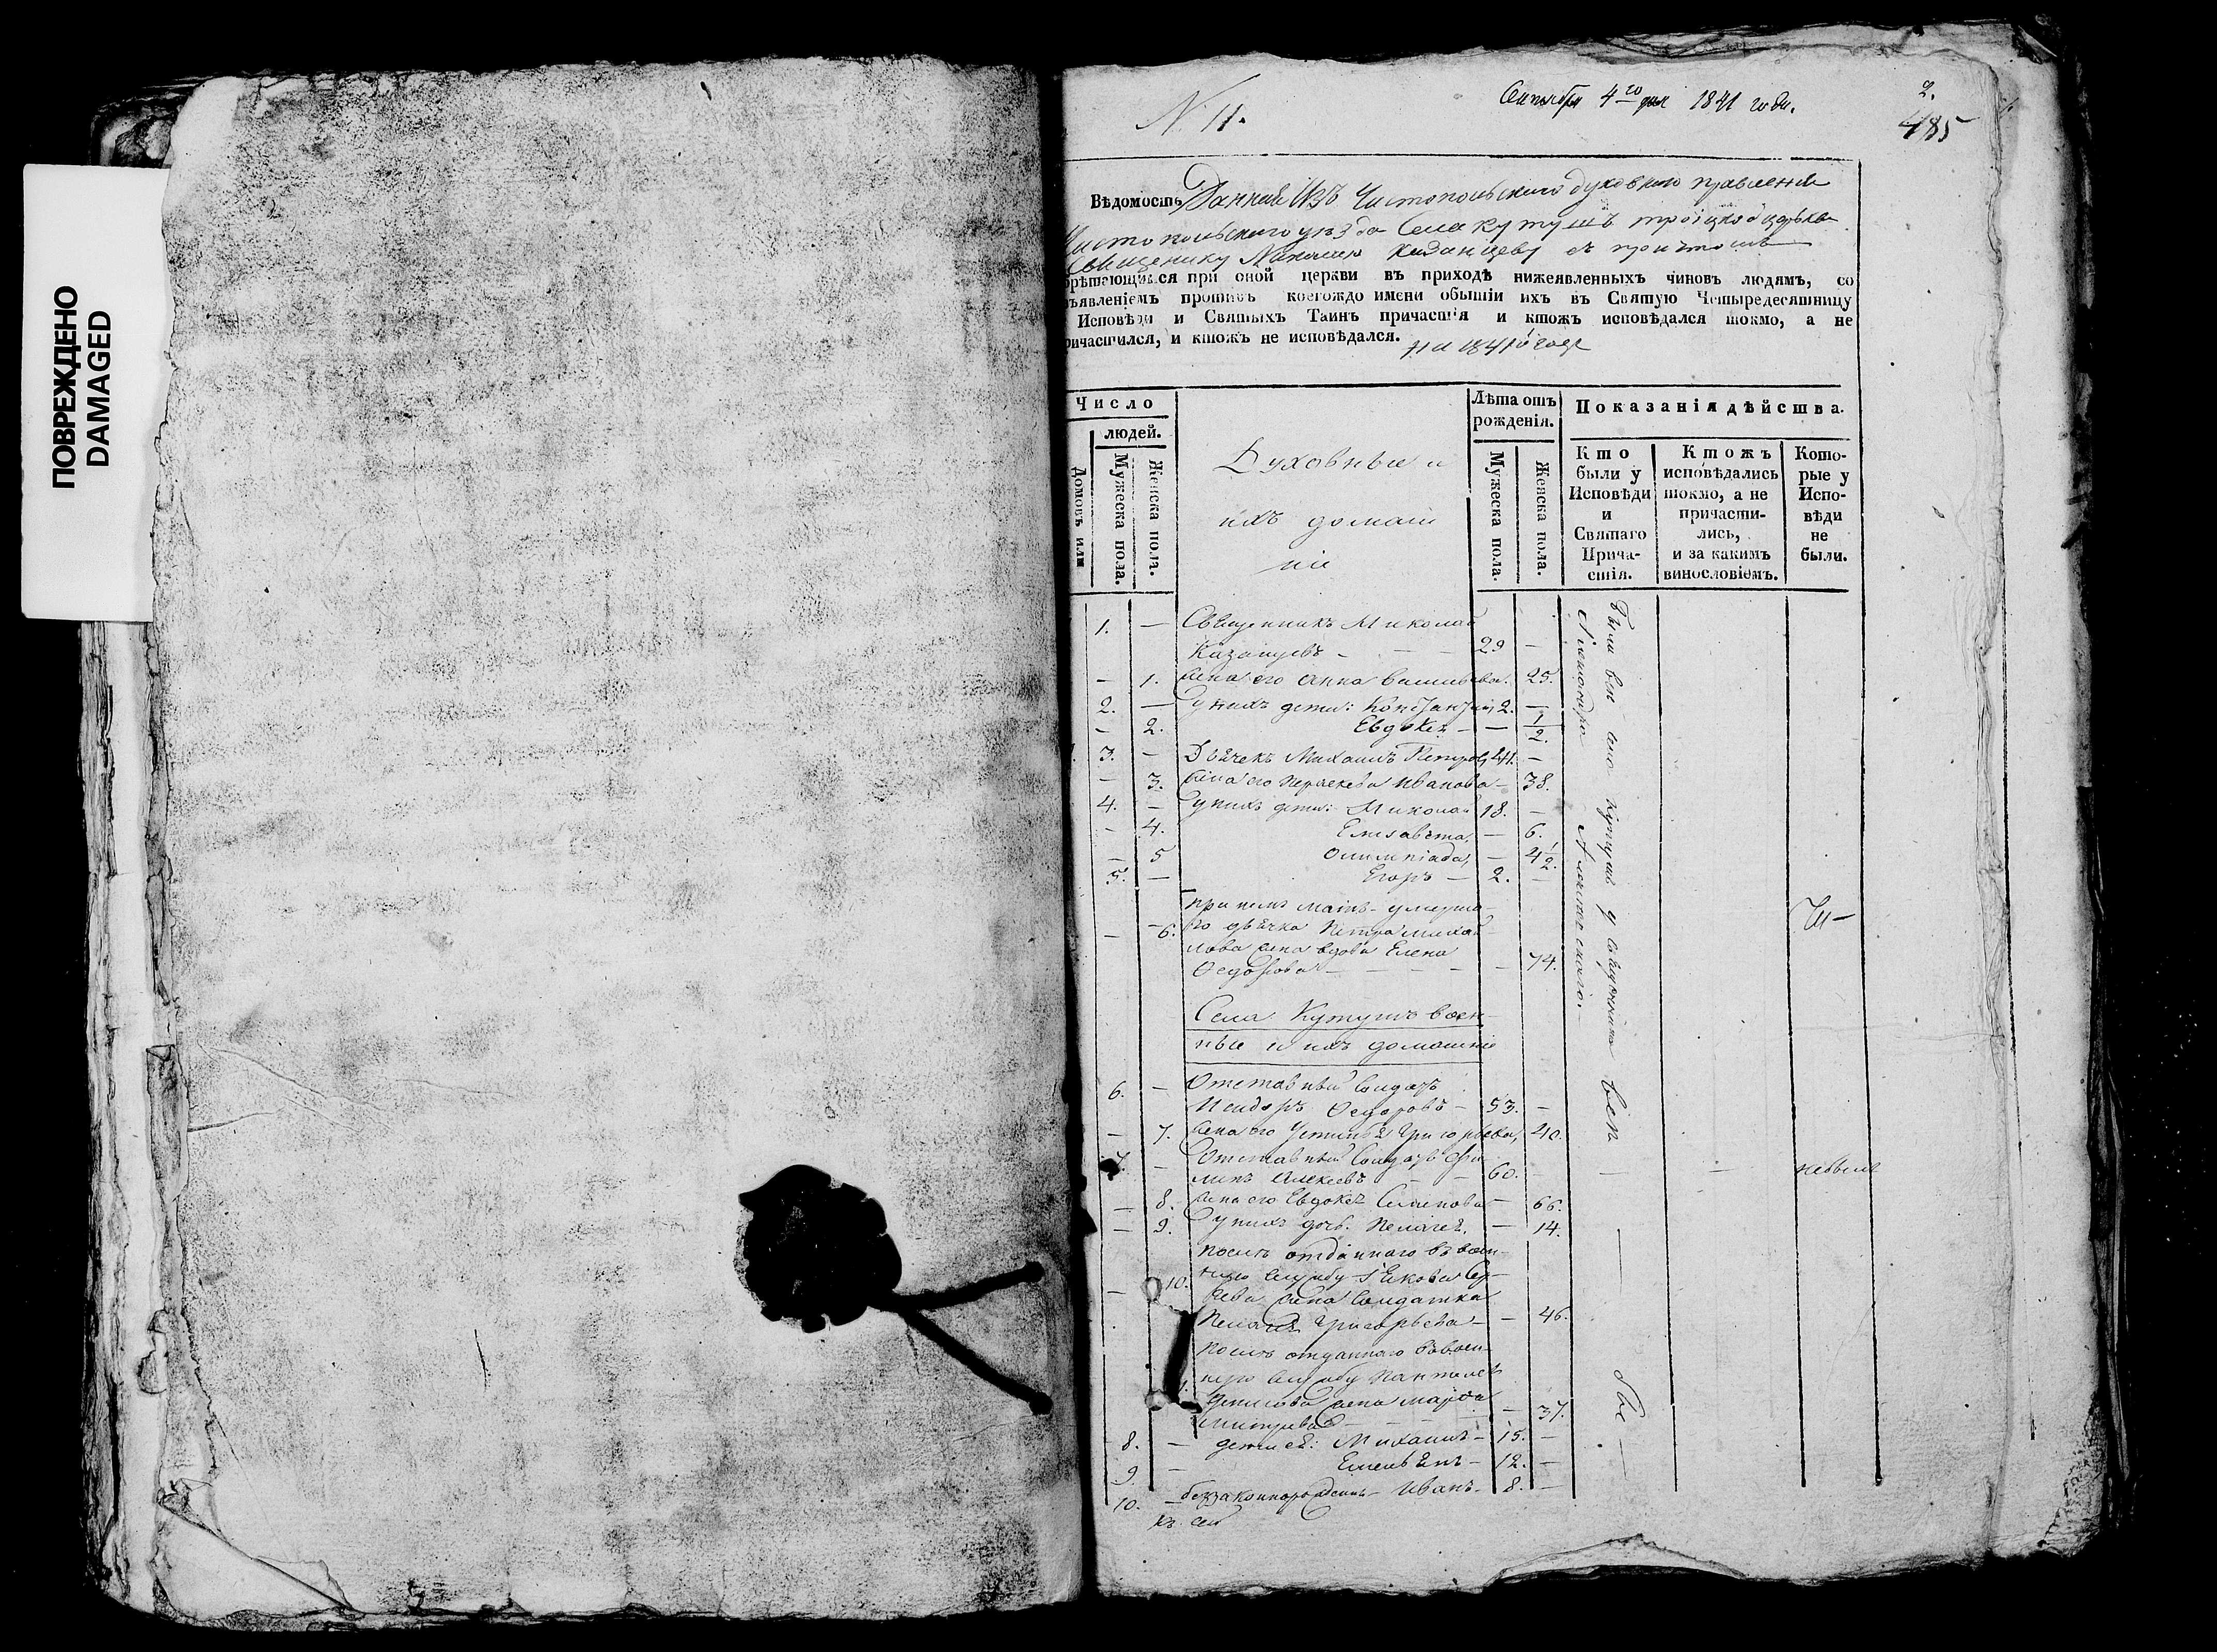 ПОВРЕЖДЕНО
DAMAGED
N. 11.
Сентября 4го дня 1841 года.
2.
485
Вѣдомость Данная Изъ Чистопольскаго духовнаго правленія
Чистопольскаго уѣзда Села кутушъ троицкой церькви
Священику Миколаю Казанцеву съ причтомъ
брѣтающимся при оной церкви въ приходѣ нижеявленныхъ чиновъ людямъ, со
ъявленіемъ противъ коегождо имени бытіи ихъ въ Святую Четыредесятницу
Исповѣди и Святыхъ Таинъ причастія и ктожъ исповѣдался токмо, а не
ричастился, и ктожъ не исповѣдался.
на 1841й годъ
Число
людей.
Домовъ или
Мужеска пола.
Женска пола.
Духовные и
ихъ домаш
ніе
Лѣта отъ
рожденія.
Мужеска пола.
Женска пола.
Показанія дѣйства.
Кто
были у
Исповѣди
и
Святаго
Прича-
стія.
Ктожъ
исповѣдались
токмо, а не
причасти-
лись,
и за какимъ
винословіемъ.
Кото-
рые у
Испо-
вѣди
не
были.
1. — Священникъ Миколай
Казанцевъ — 29 —
— 1. жена его Анна Васильева. 25.
2. — У нихъ дети: Константинъ 2. —
— 2. Евдокія — — 1/2.
3. — Дьячекъ Михаилъ Петровъ 41. —
— 3. жена его Параскева Иванова — 38.
4. — У нихъ дети: Миколай 18. —
— 4. Елисавета, — 6.
— 5 Олимпіада, — 4 1/2.
5. — Егоръ — 2. —
при немъ мать умерша
— 6. го дьячка Петра Михай
лова жена вдова Елена
Ѳедорова — — 74.
Села Кутушъ воен
ные и ихъ домашніе
6. — Отставный Солдатъ
Исидоръ Ѳедоровъ — 53. —
— 7. жена его Устинья Григорьева, 40.
7. — Отставный Солдатъ Фи
липъ Алексеевъ — 60. —
— 8. жена его Евдокія Семенова — 66.
— 9. У нихъ дочь Пелагея. — 14.
послѣ отданнаго въ воен-
— 10. ную службу Якова Сер-
геева жена Солдатка
Пелагея Григорьева — — 46.
послѣ отданнаго въ воен-
ную службу Пантелея
Денисова жена Марфа
Митриева — — 37.
8. — дети её: Михаилъ — 15. —
9 — Емельянъ — 12. —
10. — беззаконнорожденный Иванъ — 8. —
Были все села Кутушъ у Священника
Александра
небыли